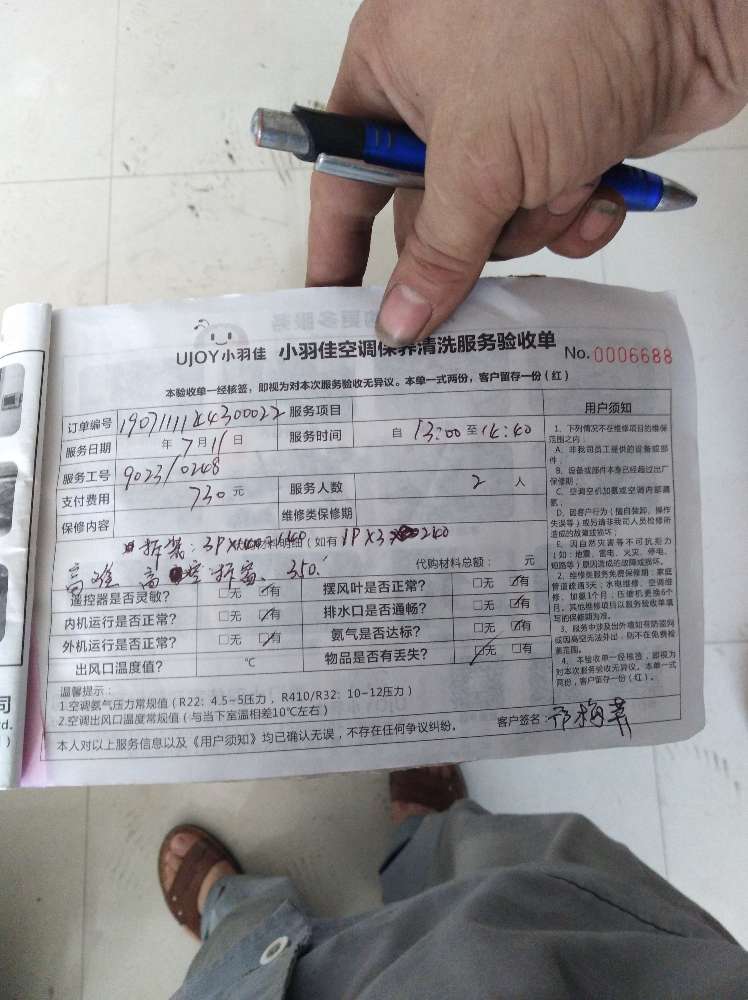 UJOY小羽佳 小羽佳空调保养清洗服务验收单 No.0006688
本验收单一经核签，即视为对本次服务验收无异议。本单一式两份，客户留存一份（红）
订单编号 1907111144300022 服务项目
服务日期 年7月11日 服务时间 自 13:00 至 14:40
服务工号 9023/0248
支付费用 730元 服务人数 2 人
保修内容 维修类保修期
拆装：3P 明细（如有 1P×3 240
高难 高 拆装 350. 代购材料总额： 元
遥控器是否灵敏？ □无 ☑有 摆风叶是否正常？ □无 ☑有
内机运行是否正常？ □无 ☑有 排水口是否通畅？ □无 ☑有
外机运行是否正常？ □无 ☑有 氨气是否达标？ □无 ☑有
出风口温度值？ ℃ 物品是否有丢失？ ☑无 □有
温馨提示：
1.空调氨气压力常规值（R22: 4.5~5压力，R410/R32: 10~12压力）
2.空调出风口温度常规值（与当下室温相差10℃左右）
本人对以上服务信息以及《用户须知》均已确认无误，不存在任何争议纠纷。 客户签名：
用户须知
1、下列情况不在维修项目的维保
范围之内：
A、非我司员工提供的设备或部
件；
B、设备或部件本身已经超过出厂
保修期；
C、空调空机加氨或空调内部漏
氨；
D、因客户行为（擅自装卸、操作
失误等）或另请非我司人员检修所
造成的故障或损坏；
E、因自然灾害等不可抗差力
（如：地震、雷电、火灾、停电、
短路等）原因造成的故障或损坏。
2、维修类服务免费保修期：家庭
管道疏通3天；水电维修、空调维
修、加氨1个月；压缩机更换6个
月。其他维修项目以服务验收单填
写的保修期为准。
3、服务中涉及出外墙如有防盗网
或因高空无法外出，则不在免费检
查范围。
4、本验收单一经核签，即视为
对本次服务验收无异议。本单一式
两份，客户留存一份（红）。
司
td.